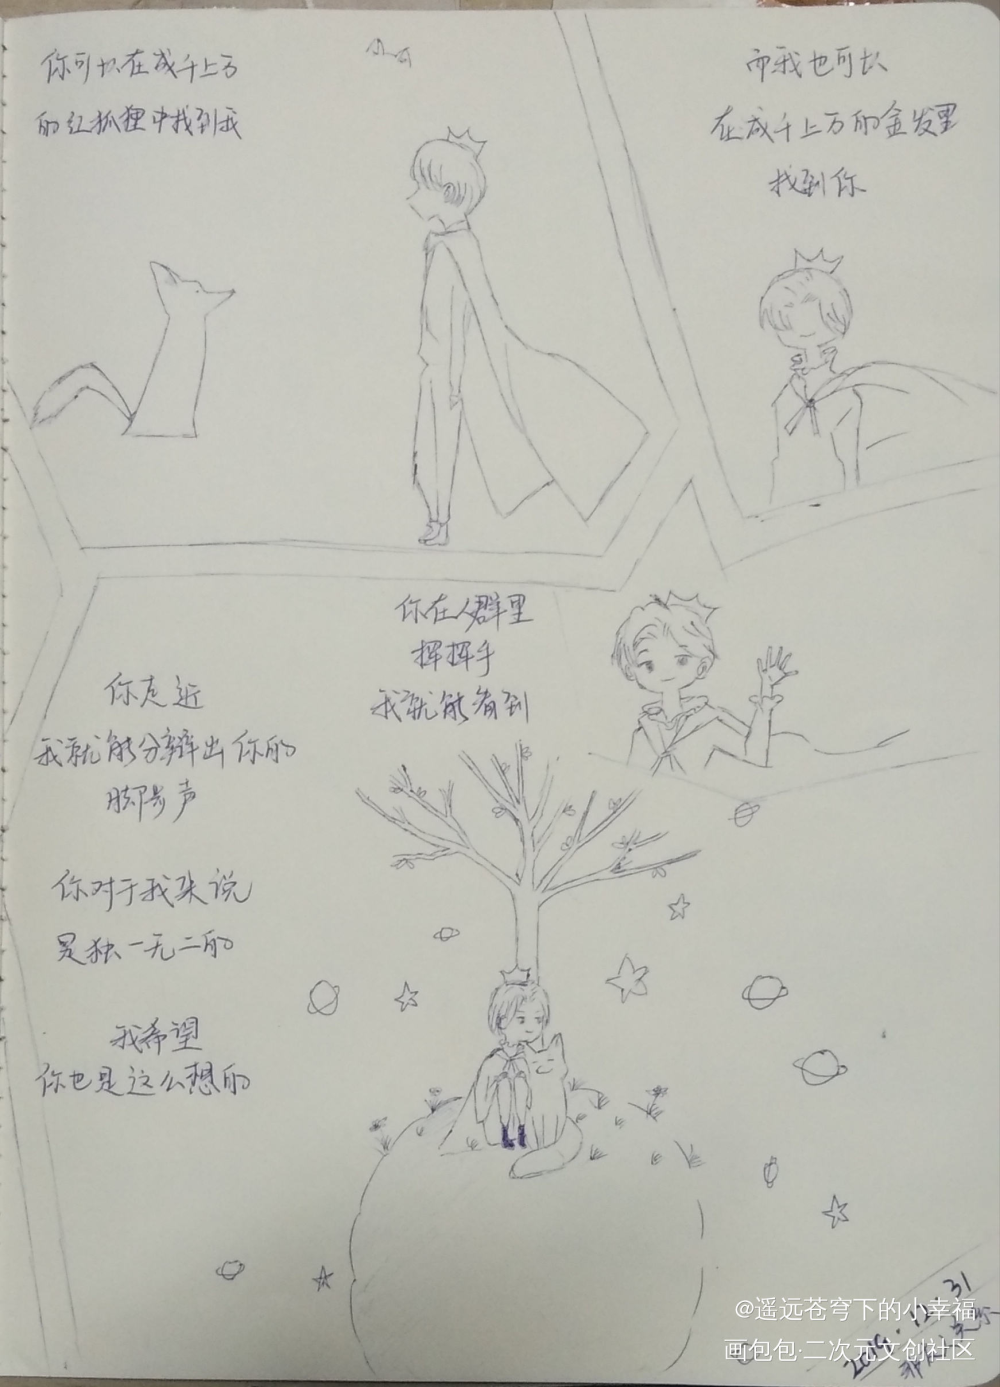 你可以在成千上万
的红狐狸中找到我
而我也可以
在成千上万的金发里
找到你
你在人群里
挥挥手
我就能看到
你走近
我就能分辨出你的
脚步声
你对于我来说
是独一无二的
我希望
你也是这么想的
2019.12.31
@遥远苍穹下的小幸福
画包包·二次元文创社区